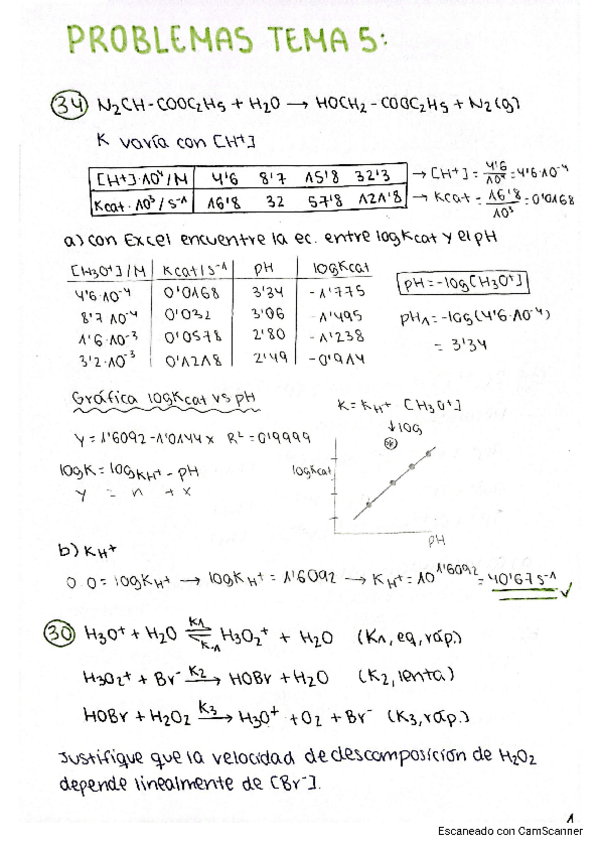 PROBLEMAS TEMA 5:
34 N2CH-COOC2H5 + H2O → HOCH2-COOC2H5 + N2(g)
K varía con [H+]
[H+]·10⁴/M 4'6 8'7 15'8 32'3 → [H+] = 4'6/10⁴ = 4'6·10⁻⁴
Kcat·10³/s⁻¹ 16'8 32 57'8 121'8 → Kcat = 16'8/10³ = 0'0168
a) con Excel encuentre la ec. entre logKcat y el pH
[H3O+]/M Kcat/s⁻¹ pH logKcat
4'6·10⁻⁴ 0'0168 3'34 -1'775
8'7·10⁻⁴ 0'032 3'06 -1'495
1'6·10⁻³ 0'0578 2'80 -1'238
3'2·10⁻³ 0'1218 2'49 -0'914
pH = -log[H3O+]
pH1 = -log(4'6·10⁻⁴)
= 3'34
Gráfica logKcat vs pH
K = KH+ [H3O+]
↓log
*
y = 1'6092 - 1'0144x R² = 0'9999
logK = logKH+ - pH
y = n + x
logKcat
pH
b) KH+
O.O = logKH+ → logKH+ = 1'6092 → KH+ = 10^1'6092 = 40'67 s⁻¹ ✓
30 H3O+ + H2O ⇌ H3O2+ + H2O (K1, eq, ráp.)
K1
K-1
H3O2+ + Br⁻ K2→ HOBr + H2O (K2, lenta)
HOBr + H2O2 K3→ H3O+ + O2 + Br⁻ (K3, ráp.)
Justifique que la velocidad de descomposición de H2O2
depende linealmente de [Br⁻].
1
Escaneado con CamScanner